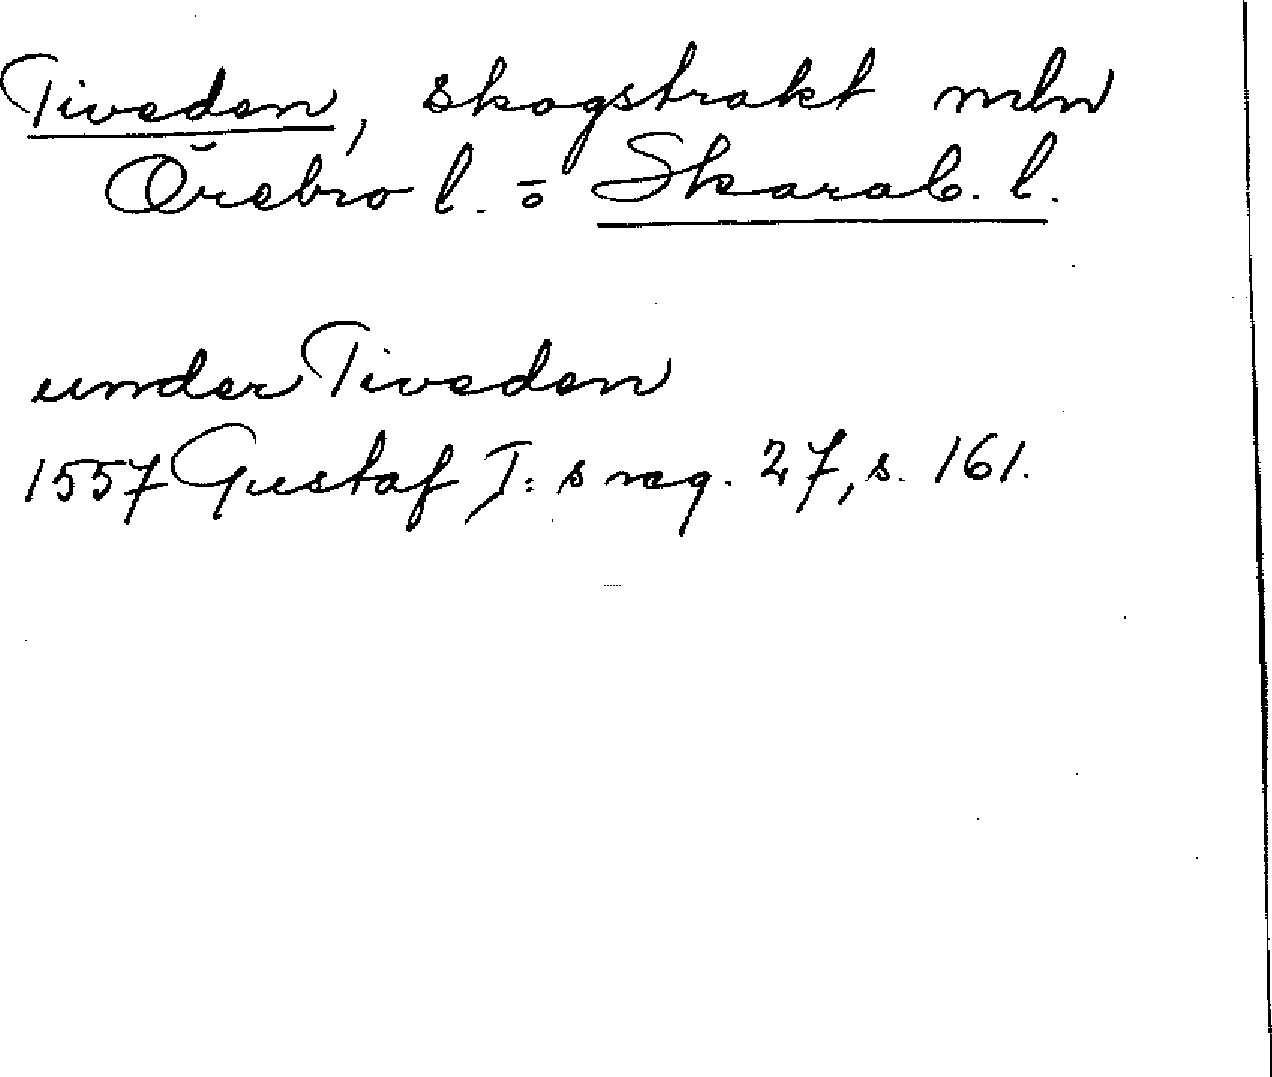 Tiveden, skogstrakt mln
Örebro l. o Skarab. l.
under Tiveden
1557 Gustaf I:s reg. 27, s. 161.